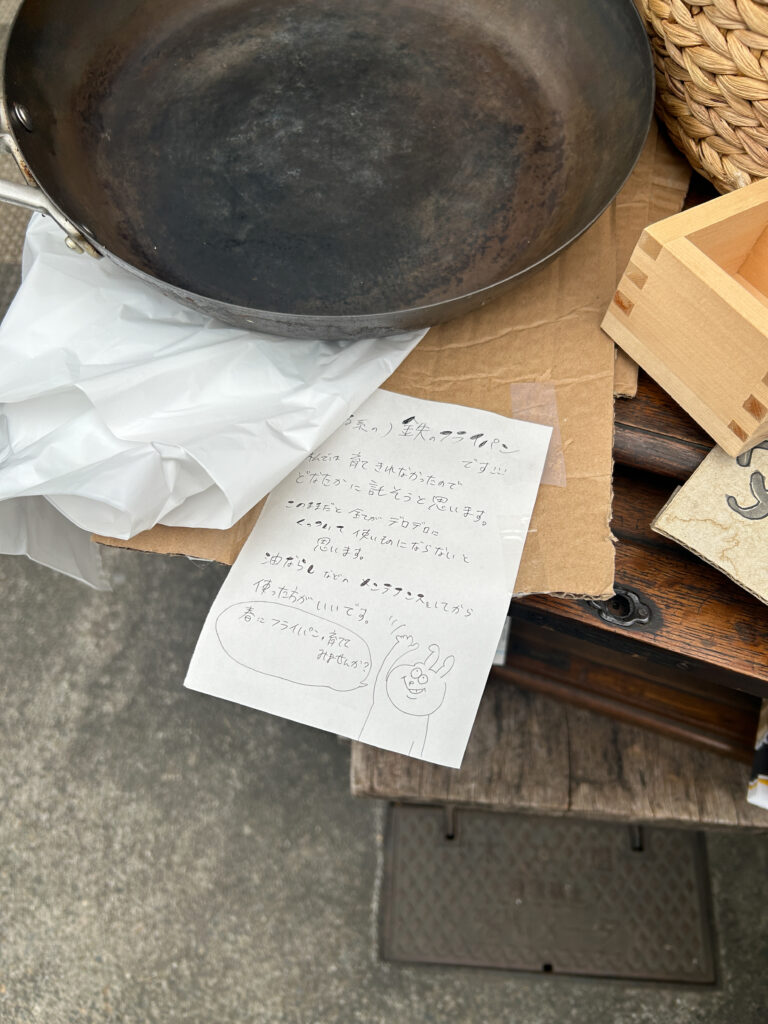 系の）鉄のフライパン
です!!!
私では育てきれなかったので
どなたかに託そうと思います。
このままだと全てがデロデロに
くっついて使いものにならないと
思います。
油ならしなどのメンテナンスをしてから
使った方がいいです。
春にフライパン、育てて
みませんか？